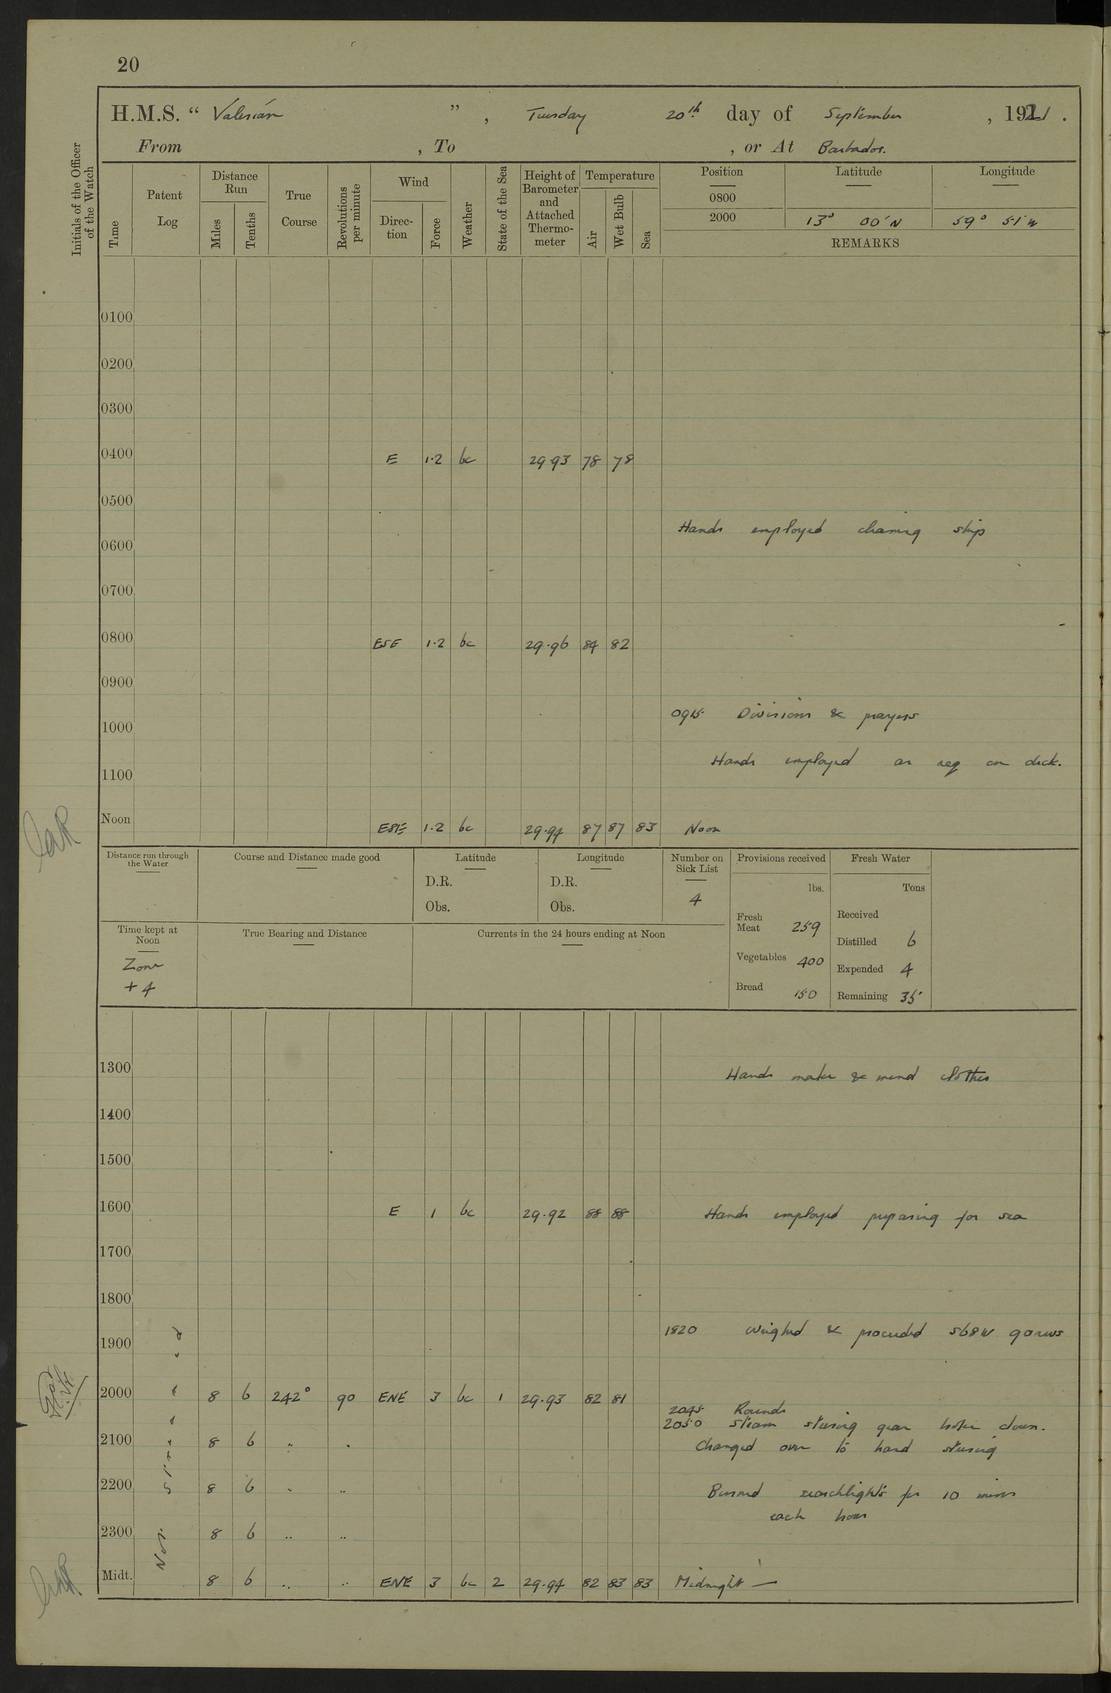 20
H.M.S. " Valerian " , Tuesday 20th day of September , 1921 .
From , To , or At Barbados.
Initials of the Officer of the Watch
Time
Patent Log
Distance Run
Miles
Tenths
True Course
Revolutions per minute
Wind
Direc- tion
Force
Weather
State of the Sea
Height of Barometer and Attached Thermo- meter
Temperature
Air
Wet Bulb
Sea
Position Latitude Longitude
0800
2000 13° 00' N 59° 51' W
REMARKS
0100
0200
0300
0400 E 1·2 bc 29 93 78 78
0500
Hands employed cleaning ship
0600
0700
0800 ESE 1·2 bc 29·96 84 82
0900
0915 Divisions & prayers
1000
Hands employed as req on deck.
1100
Noon ESE 1·2 bc 29·94 87 87 83 Noon
Distance run through the Water
Course and Distance made good
Latitude
D.R.
Obs.
Longitude
D.R.
Obs.
Number on Sick List
4
Provisions received
lbs.
Fresh Meat 259
Vegetables 400
Bread 150
Fresh Water
Tons
Received
Distilled 6
Expended 4
Remaining 35
Time kept at Noon
Zone
+ 4
True Bearing and Distance
Currents in the 24 hours ending at Noon
1300
Hands make & mend clothes
1400
1500
1600 E 1 bc 29·92 88 88 Hands employed preparing for sea
1700
1800
1820 weighed & proceeded S68W 90 revs
1900
2000 8 6 242° 90 ENE 3 bc 1 29·93 82 81
2045 Rounds
2050 Steam steering gear broke down.
2100 8 6 " " Changed over to hand steering
2200 8 6 " " Burned searchlights for 10 mins
each hour
2300 8 6 " "
Not Streamed
Midt. 8 6 " " ENE 3 bc 2 29·94 82 83 83 Midnight —